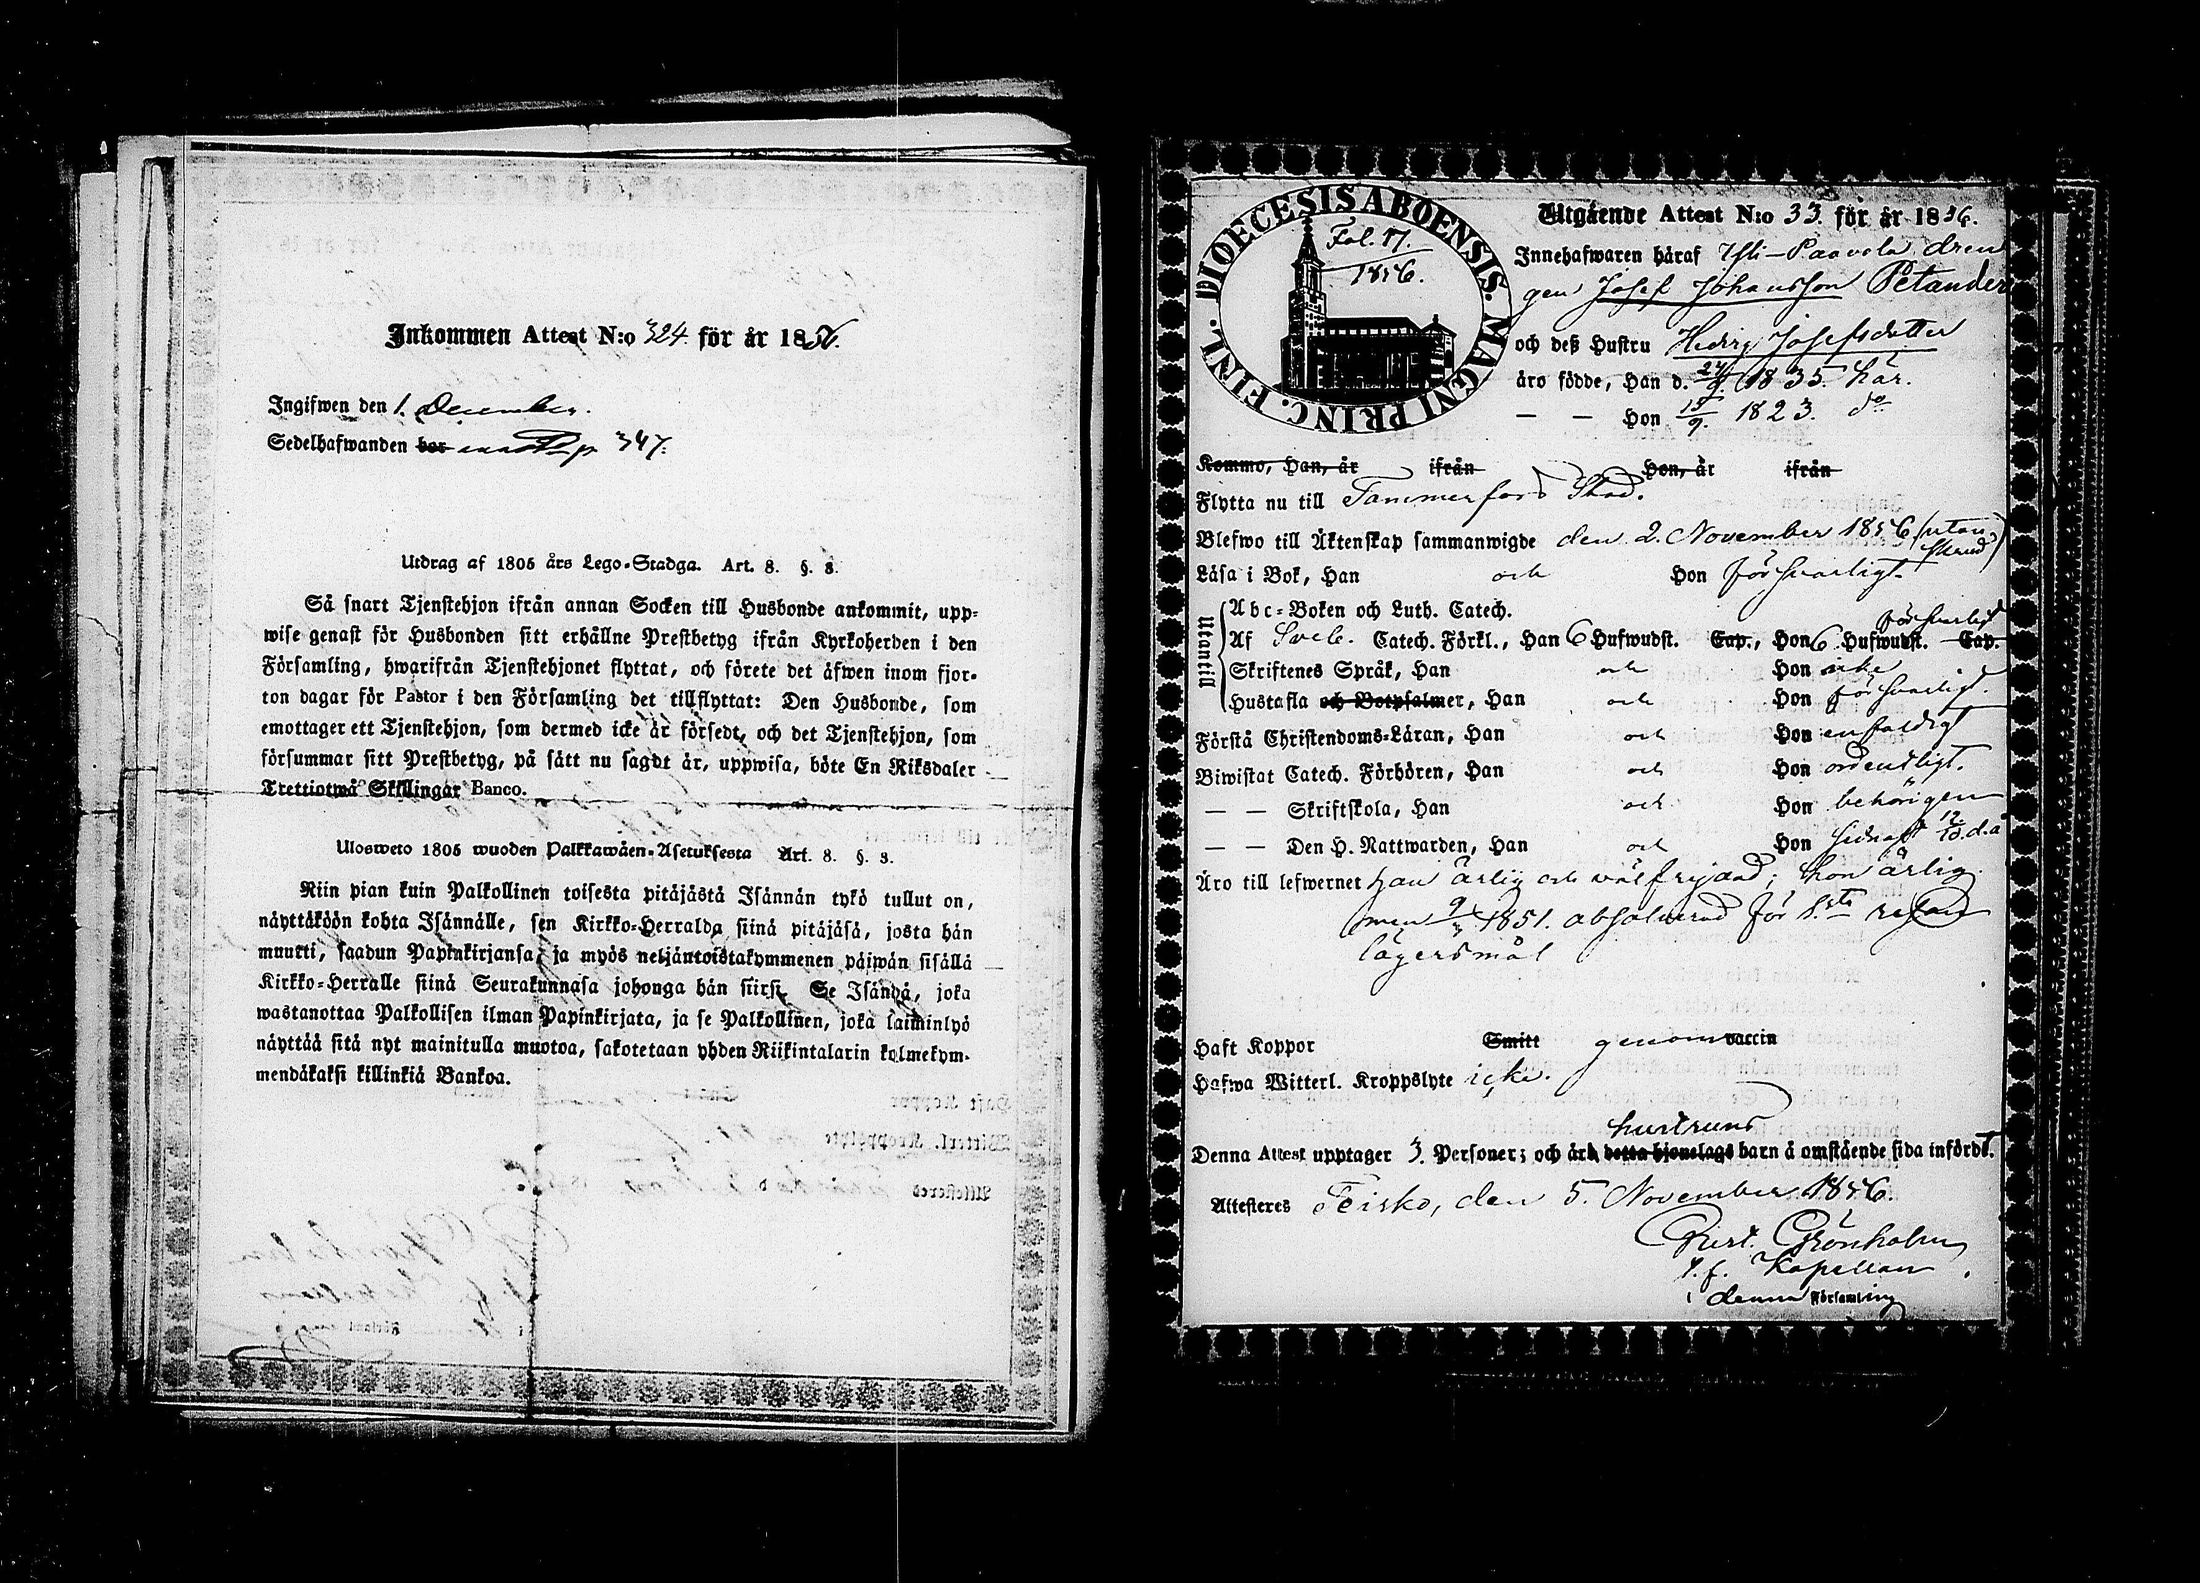 Inkommen Attest N:o 324. för år 1856.
Ingifwen den 1. December.
Sedelhafwanden bor p. 347.
Utdrag af 1805 års Lego-Stadga. Art. 8. §. 8.
Så snart Tjenstehjon ifrån annan Socken till Husbonde ankommit, upp-
wise genast för Husbonden sitt erhållne Prestbetyg ifrån Kyrkoherden i den
Församling, hwarifrån Tjenstehjonet flyttat, och förete det äfwen inom fjor-
ton dagar för Pastor i den Församling det tillflyttat: Den Husbonde, som
emottager ett Tjenstehjon, som dermed icke är försedt, och det Tjenstehjon, som
försummar sitt Prestbetyg, på sätt nu sagdt är, uppwisa, böte En Riksdaler
Trettiotwå Skillingar Banco.
Ulosweto 1805 wuoden Palkkawäen-Asetuksesta Art. 8. §. 8.
Niin pian kuin Palkollinen toisesta pitäjästä Isännän tykö tullut on,
näyttäköön kohta Isännälle, sen Kirkko-Herralda siinä pitäjäsä, josta hän
muutti, saadun Papinkirjansa; ja myös neljäntoistakymmenen päiwän sisällä
Kirkko-Herralle siinä Seurakunnasa johonga hän siirsi. Se Isändä, joka
wastanottaa Palkollisen ilman Papinkirjata, ja se Palkollinen, joka laiminlyö
näyttää sitä nyt mainitulla muotoa, sakotetaan yhden Riikintalarin kolmekym-
mendäkaksi killinkiä Bankoa.
DIOECESIS ABOENSIS. MAGNI PRINC. FINL.
Fol. 17.
1856.
Utgående Attest N:o 33. för år 1856.
Innehafwaren häraf Yli-Paavola dren
gen Josef Johansson Petander
och deß Hustru Hedvig Josefsdotter
äro födde, Han d. 24/9. 1835. här.
— — Hon 15/9. 1823. do
Kommo, Han, år ifrån Hon, år ifrån
Flytta nu till Tammerfors Stad.
Blefwo till Äktenskap sammanwigde den 2. November 1856 (utan
skrud)
Läsa i Bok, Han och Hon försvarligt.
Utantill
Abc-Boken och Luth. Catech. försvarligt
Af Sveb. Catech. Förkl., Han 6 Hufwudst. Cap., Hon 6. Hufwudst. Cap.
Skriftenes Språk, Han och Hon icke
Hustafla och Botpsalmer, Han och Hon försvarligt.
Förstå Christendoms-Läran, Han och Hon enfaldigt
Biwistat Catech. Förhören, Han och Hon ordentligt.
— — Skriftskola, Han och Hon behörigen
— — Den H. Nattwarden, Han och Hon sednast 12/10. d. å
Äro till lefwernet han ärlig och välfrejdad; hon ärlig.
men 9/3 1851. absolverad för 1.sta resan
lägersmål
Haft Koppor Smitt genom vaccin
Hafwa Witterl. Kroppslyte icke.
hustruns
Denna Attest upptager 3. Personer; och äro detta hjonelags barn å omstående sida infördt.
Attesteres Teisko, den 5. November 1856.
Grönholm
t. f. Kapellan
i denna Församling